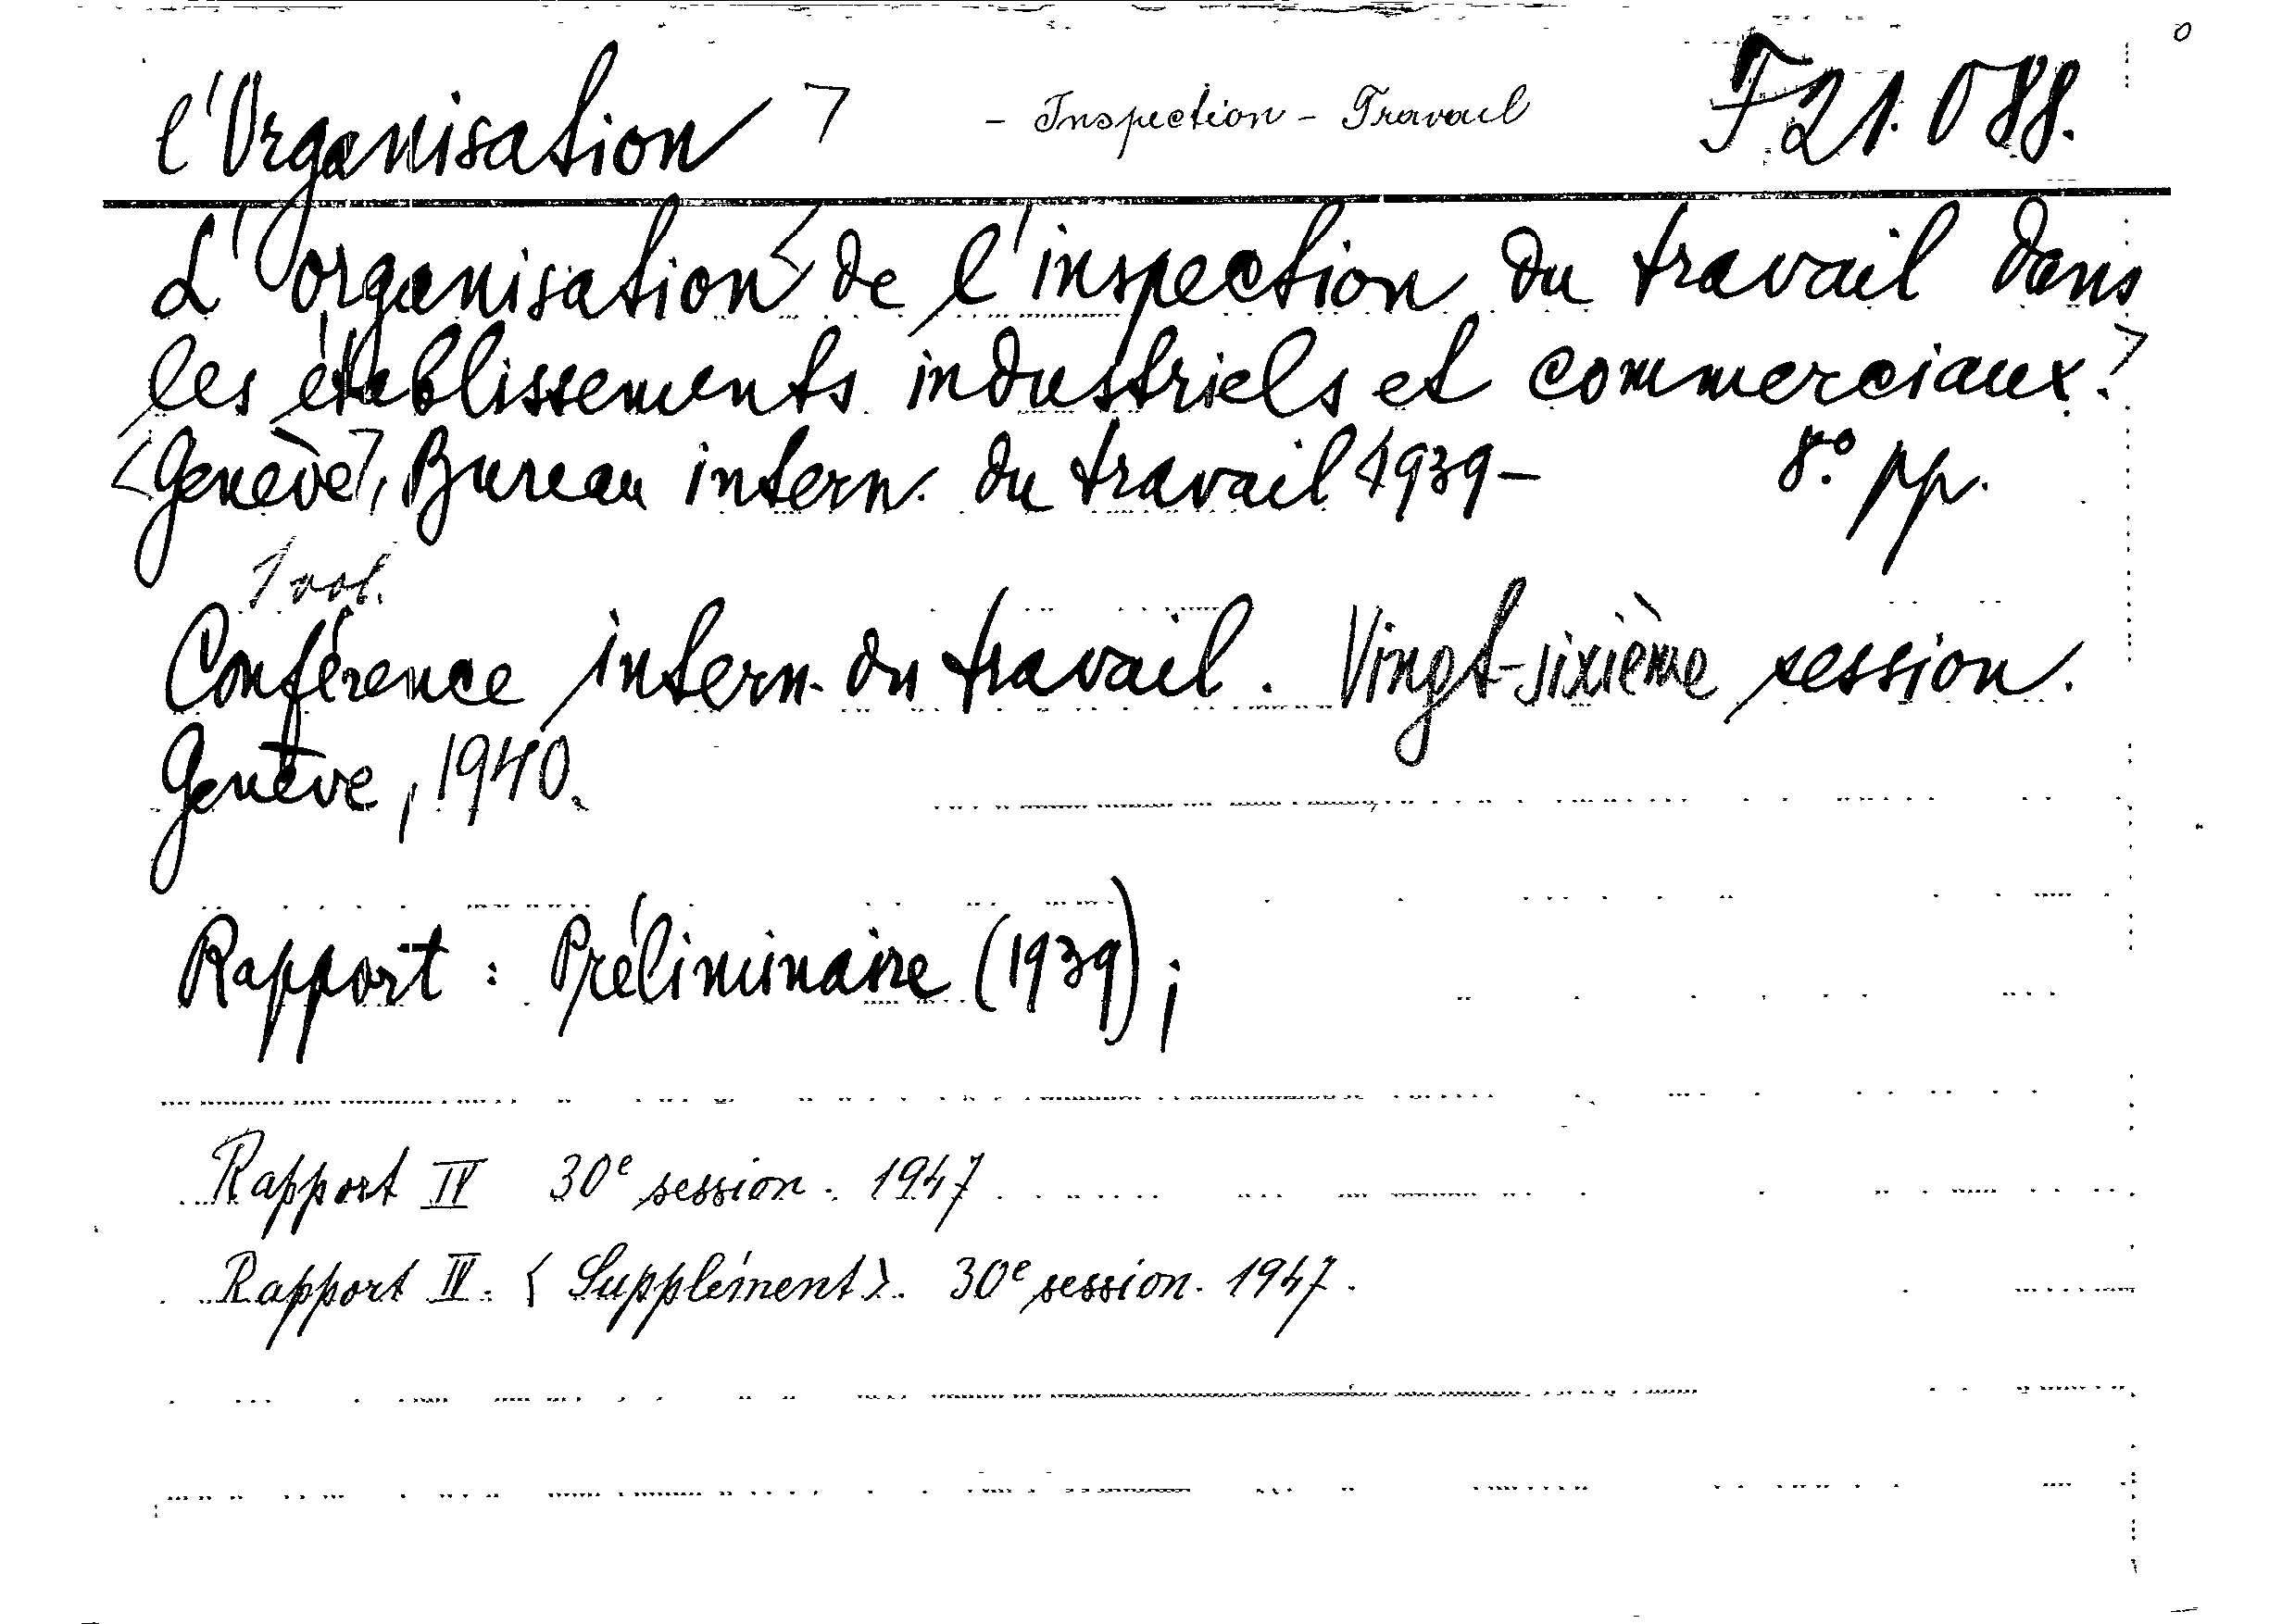 l'Organisation > - Inspection - Travail F 21.088.
L'organisation < de l'inspection du travail dans
les établissements industriels et commerciaux. >
<Genève>, Bureau intern. du travail 1939 - 8° pp.
1 vol.
Conférence intern. du travail. Vingt-sixième session.
Genève, 1940.
Rapport : Préliminaire (1939) ;
Rapport IV 30e session. 1947
Rapport IV. < Supplément >. 30e session. 1947.